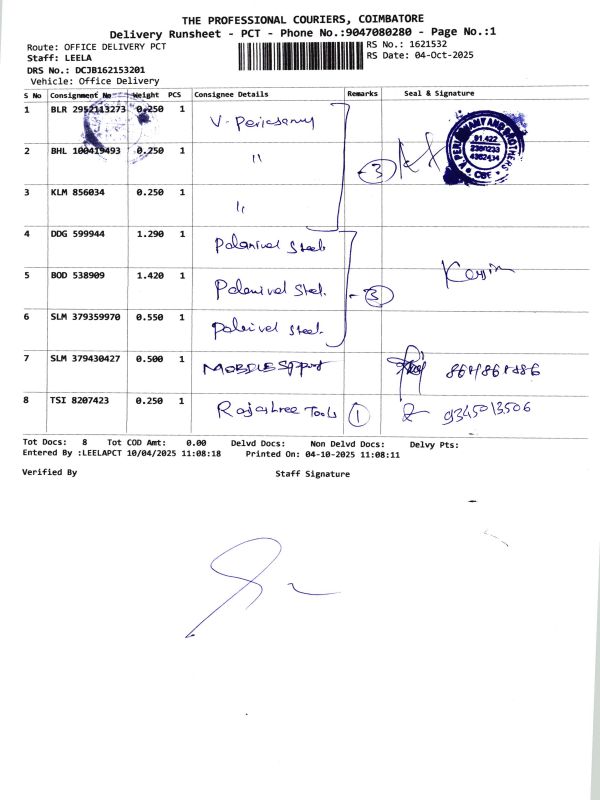 THE PROFESSIONAL COURIERS, COIMBATORE
Delivery Runsheet - PCT - Phone No.:9047080280 - Page No.:1
Route: OFFICE DELIVERY PCT
RS No.: 1621532
Staff: LEELA
RS Date: 04-Oct-2025
DRS No.: DCJB162153201
Vehicle: Office Delivery
S No Consignment No Weight PCS Consignee Details Remarks Seal & Signature
1 BLR 2952113273 0.250 1 V. Periesamy
2 BHL 100419493 0.250 1 " 3
3 KLM 856034 0.250 1 "
4 DDG 599944 1.290 1 Palanivel Steels
5 BOD 538909 1.420 1 Palanivel Steel. 3
6 SLM 379359970 0.550 1 Palnivel Steel.
7 SLM 379430427 0.500 1
8 TSI 8207423 0.250 1 Rajashree Tools 1 9345013506
91.422
CBE
Tot Docs: 8 Tot COD Amt: 0.00 Delvd Docs: Non Delvd Docs: Delvy Pts:
Entered By :LEELAPCT 10/04/2025 11:08:18 Printed On: 04-10-2025 11:08:11
Verified By Staff Signature